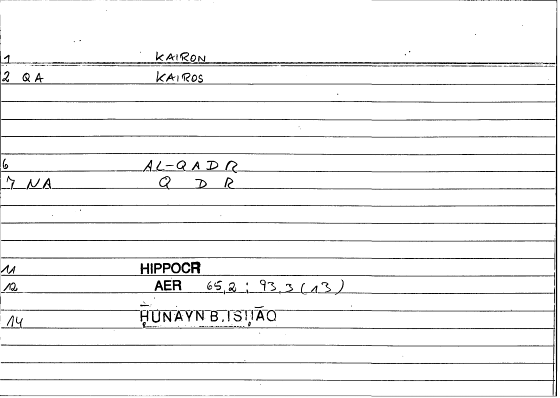 1 KAIRON
2 QA KAIROS
6 AL-QADR
7 NA Q D R
11 HIPPOCR
12 AER 65,2 : 93,3 (13)
14 ḤUNAYN B. ISḤĀQ